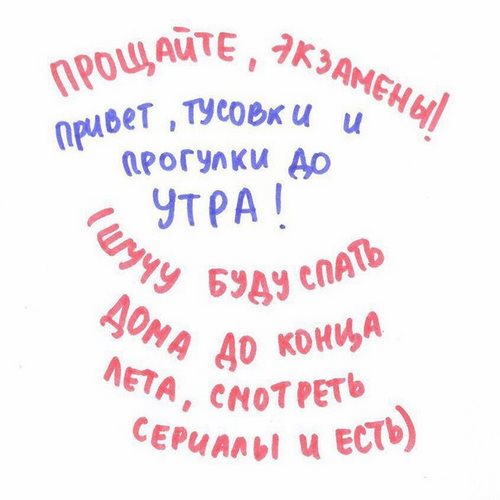 ПРОЩАЙТЕ, ЭКЗАМЕНЫ!
ПРИВЕТ, ТУСОВКИ И
ПРОГУЛКИ ДО
УТРА!
(ШУЧУ БУДУ СПАТЬ
ДОМА ДО КОНЦА
ЛЕТА, СМОТРЕТЬ
СЕРИАЛЫ И ЕСТЬ)